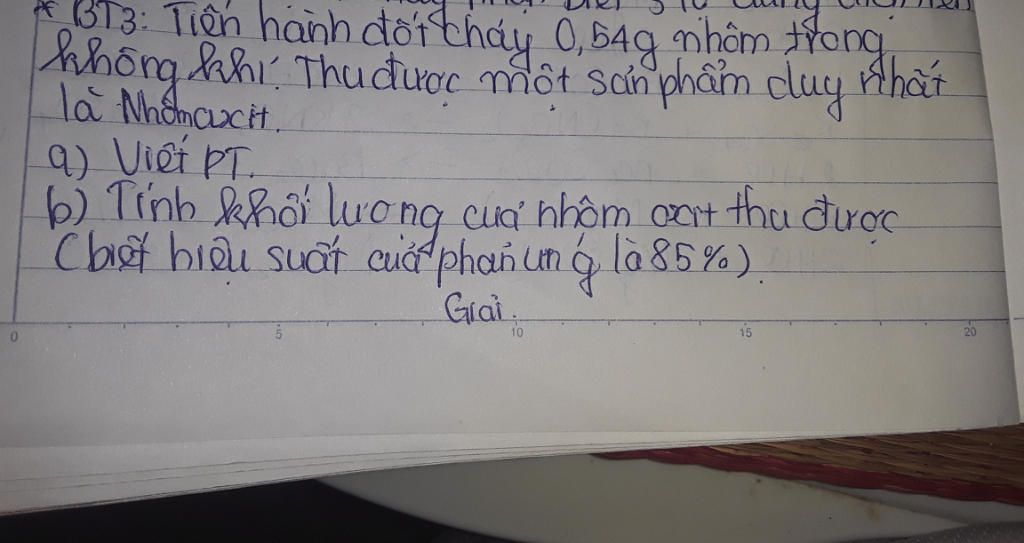 * BT3: Tiến hành đốt cháy 0,54g nhôm trong
không khí. Thu được một sản phẩm duy nhất
là Nhômaxit.
a) Viết PT.
b) Tính khối lương của nhôm oxit thu được
(biết hiệu suất của phản ứng là 85%).
Giải.
0 5 10 15 20